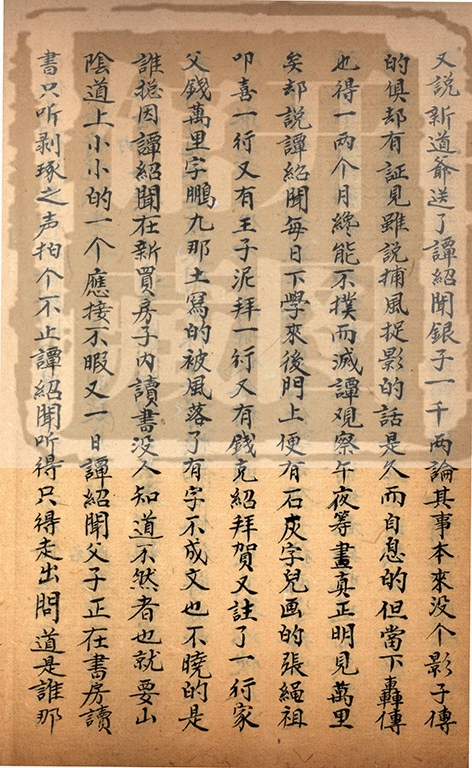 又説新道爺送了譚紹聞銀子一千两論其事本來没个影子傳
的俱却有証見雖説捕風捉影的話是久而自息的但當下轟傳
也得一两个月終能不撲而滅譚观察午夜筹畫真正明見萬里
矣却説譚紹聞每日下學來後門上便有石灰字兒画的張繩祖
叩喜一行又有王子泥拜一行又有錢克紹拜賀又註了一行家
父錢萬里字鵬九那土寫的被風落了有字不成文也不曉的是
誰總因譚紹聞在新買房子内讀書没人知道不然者也就要山
陰道上小小的一个應接不暇又一日譚紹聞父子正在書房讀
書只听剥琢之声拍个不止譚紹聞听得只得走出問道是誰那